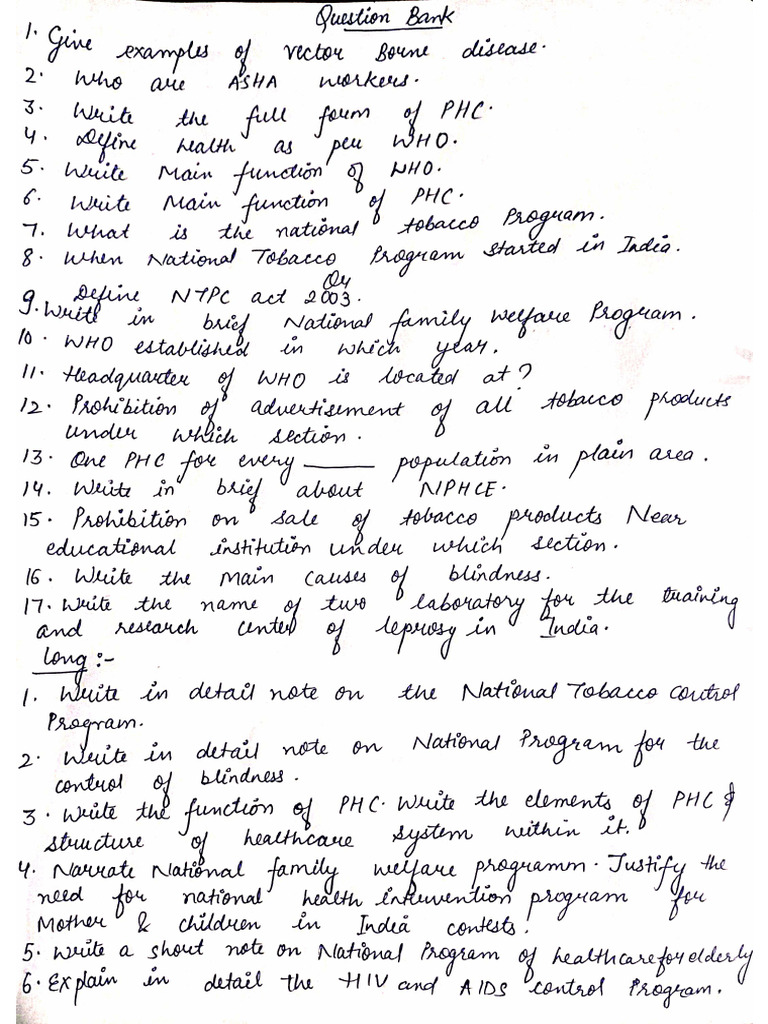 Question Bank
1. Give examples of vector Borne disease.
2. Who are ASHA workers.
3. Write the full form of PHC.
4. Define health as per WHO.
5. Write Main function of WHO.
6. Write Main function of PHC.
7. What is the national tobacco Program.
8. When National Tobacco Program started in India.
Or
Define NTPC act 2003.
9. Write in brief National family welfare Program.
10. WHO established in which year.
11. Headquarter of WHO is located at?
12. Prohibition of advertisement of all tobacco products
under which section.
13. One PHC for every ______ population in plain area.
14. Write in brief about NIPHCE.
15. Prohibition on sale of tobacco products Near
educational institution under which section.
16. Write the Main causes of blindness.
17. Write the name of two laboratory for the training
and research center of leprosy in India.
Long :-
1. Write in detail note on the National Tobacco control
Program.
2. Write in detail note on National Program for the
control of blindness.
3. Write the function of PHC. Write the elements of PHC &
structure of healthcare system within it.
4. Narrate National family welfare programm. Justify the
need for national health intervention program for
Mother & children in India contests.
5. Write a short note on National Program of healthcare for elderly
6. Explain in detail the HIV and AIDS control Program.